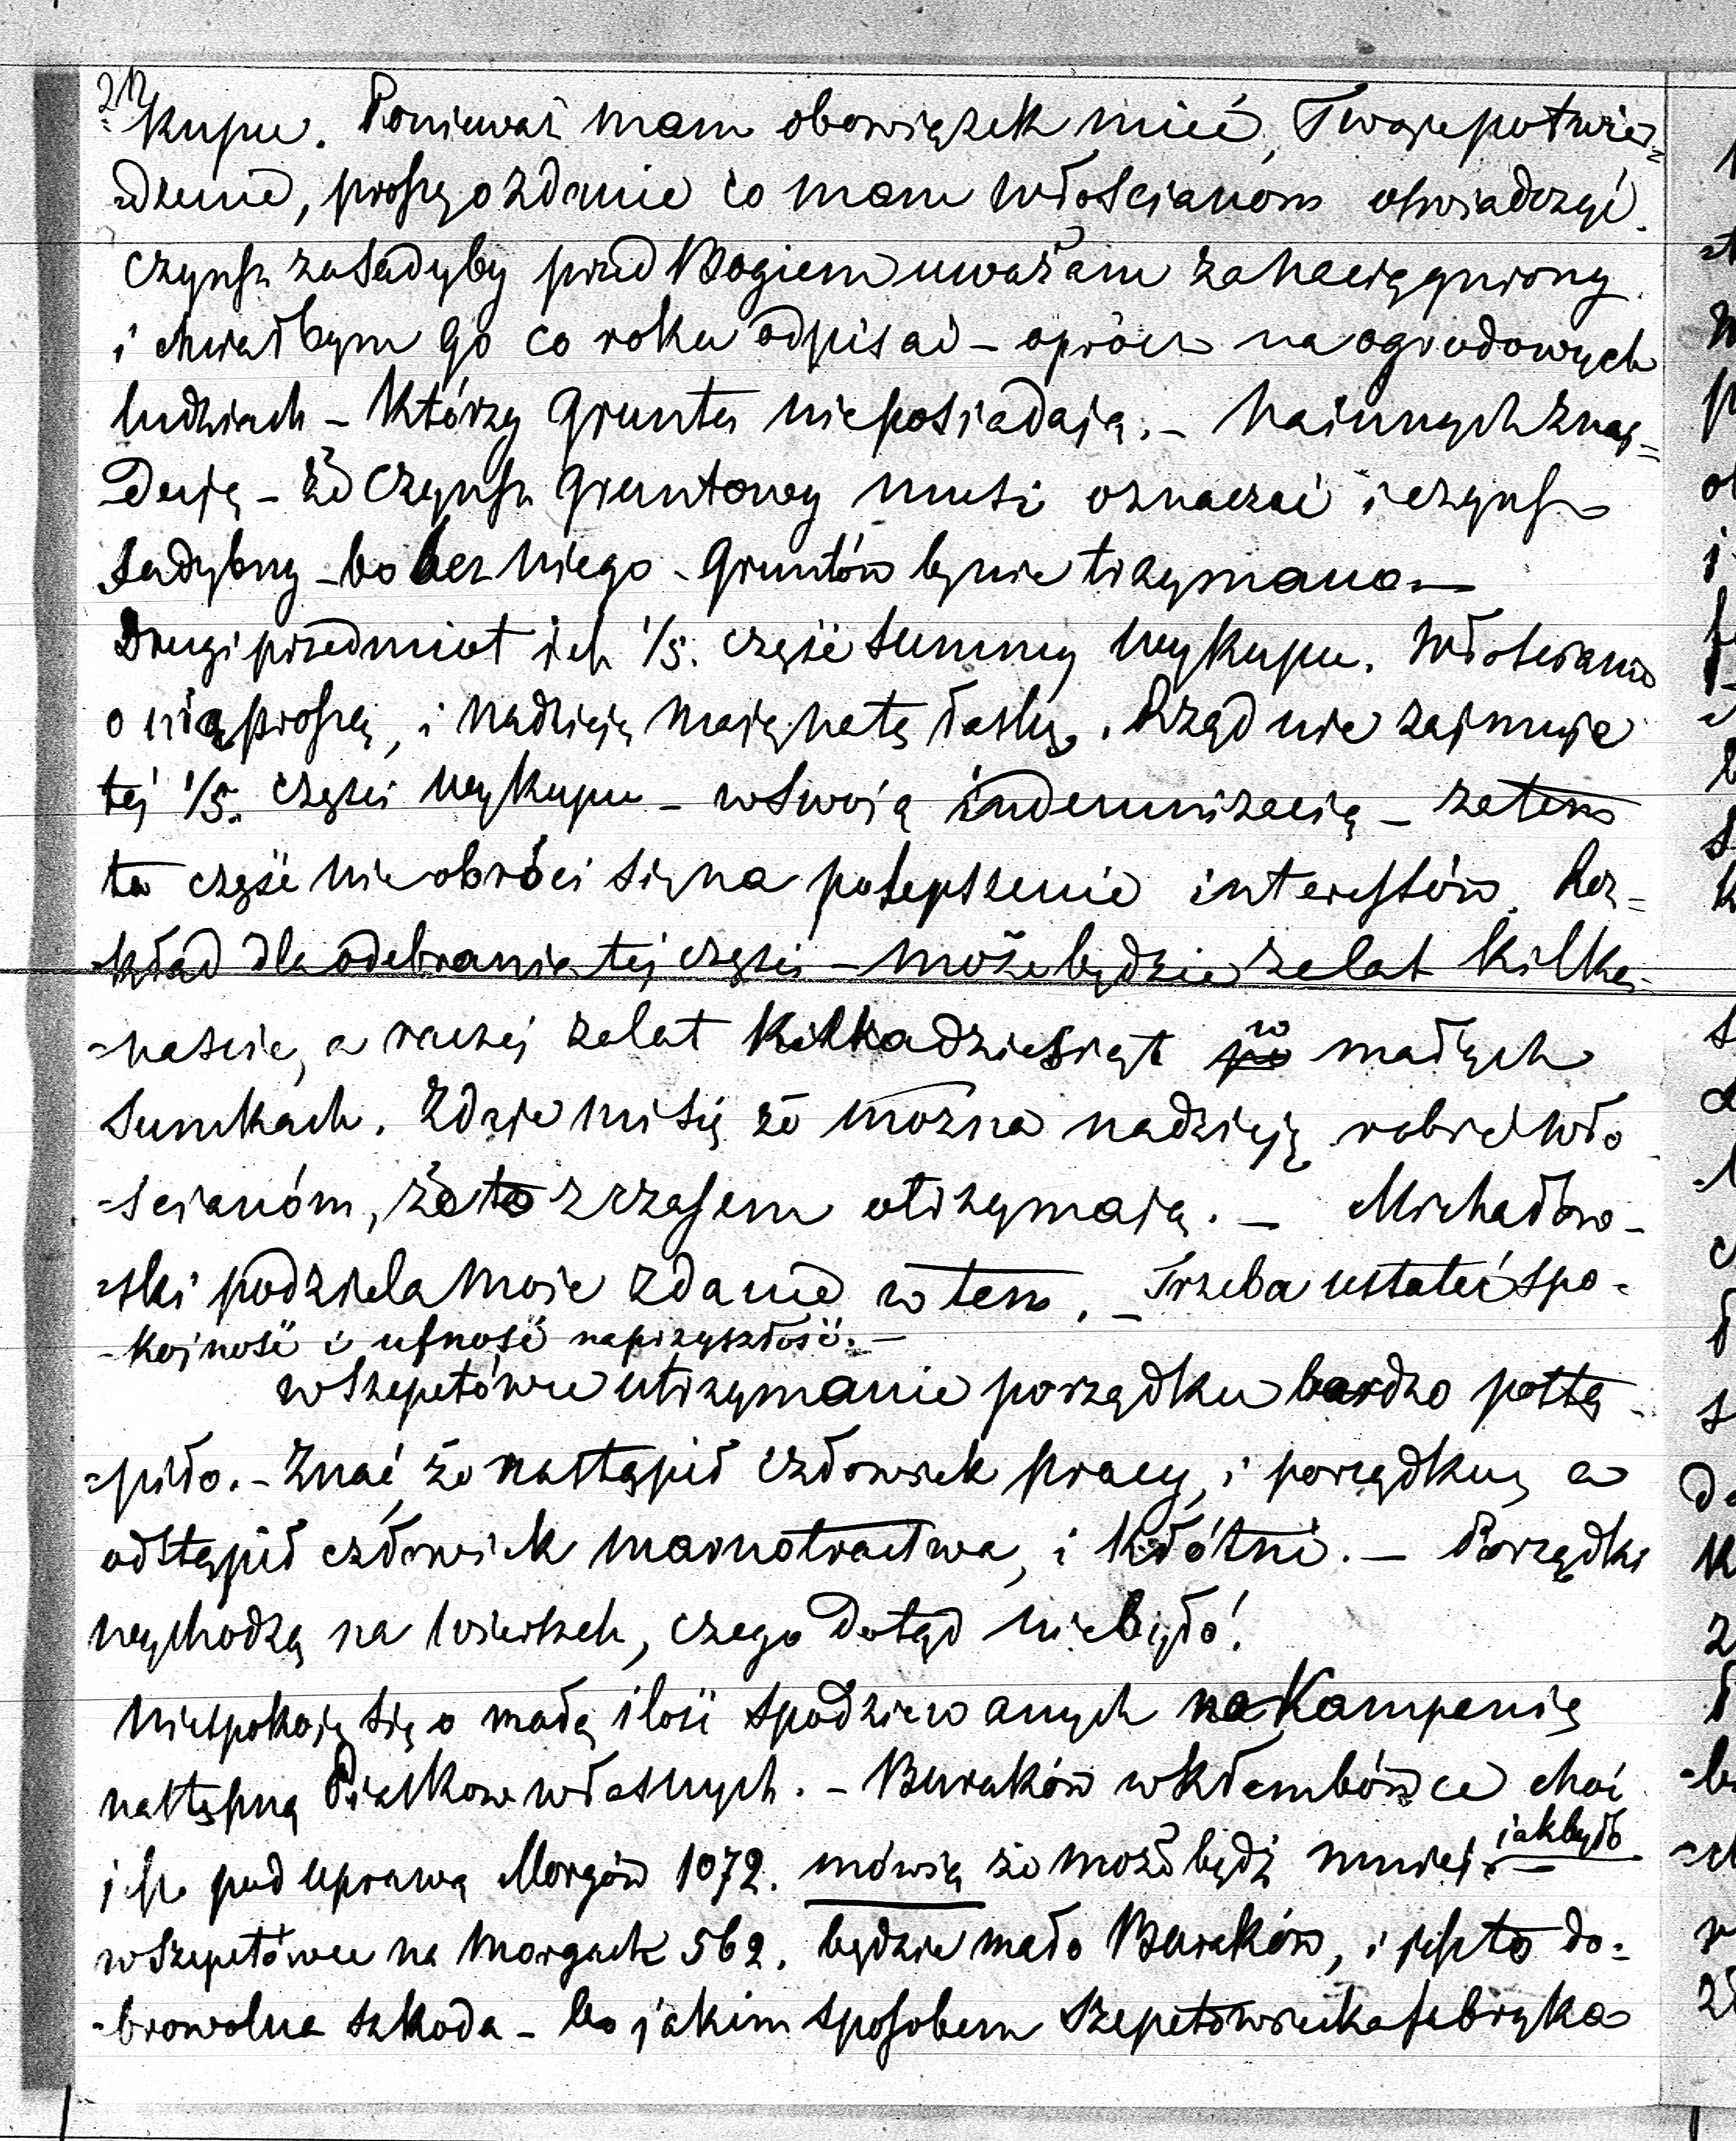 212
=kupu. Ponieważ mam obowiązek mieć, Twoje potwier=
=dzenie, proszę o zdanie co mam włoscianom oswiadczyć.
czynsz za sadyby przed Bogiem uważam za naciągniony
i chciałbym go co roku odpisać – oprócz na ogrodowych
ludziach – którzy gruntu nieposiadają. – Na innych znaj=
duję – że czynsz gruntowy musi oznaczać i czynsz
sadybny – bo bez niego – gruntów by nie trzymano –
Drugi przedmiot jest 1/5. część summy wykupu. Włoscianie
o nią proszą, i nadzieję mają na tę łaskę. Rząd nie zajmuje
téj 1/5. części wykupu – w swoją indemnizacią – zatem
ta część nie obróci się na polepszenie interessów. Roz=
=kład dla odebrania téj części – może będzie za lat kilka=
=nascie, a raczéj za lat kilkadziesiąt w małych
sumkach. Zdaje mi się że można nadzieję robić Wło
=scianóm, że to z czasem otrzymają. – Michałow-
=ski podziela moje zdanie w tem. – Trzeba ustalić spo-
-kojność i ufność na przyszłość. –
w Szepetówce utrzymanie porządku bardzo postą-
=piło. – Znać że nastąpił człowiek pracy, i porządku, a
odstąpił człowiek marnotractwa, i kłótni. – Porządki
wychodzą na wierzch, czego dotąd nie było!
Niespokoję się o małą ilość spodziewanych na Kampanię
następną Piaskow własnych. – Buraków w Kłembówce choć
jest pod uprawą Morgów 1072. mówią że może bydź mniéj jak było –
w Szepetówce na Morgach 562. będzie mało Buraków, i jest to do=
-browolna szkoda – bo jakim sposobem Szepetowiecka fabryka